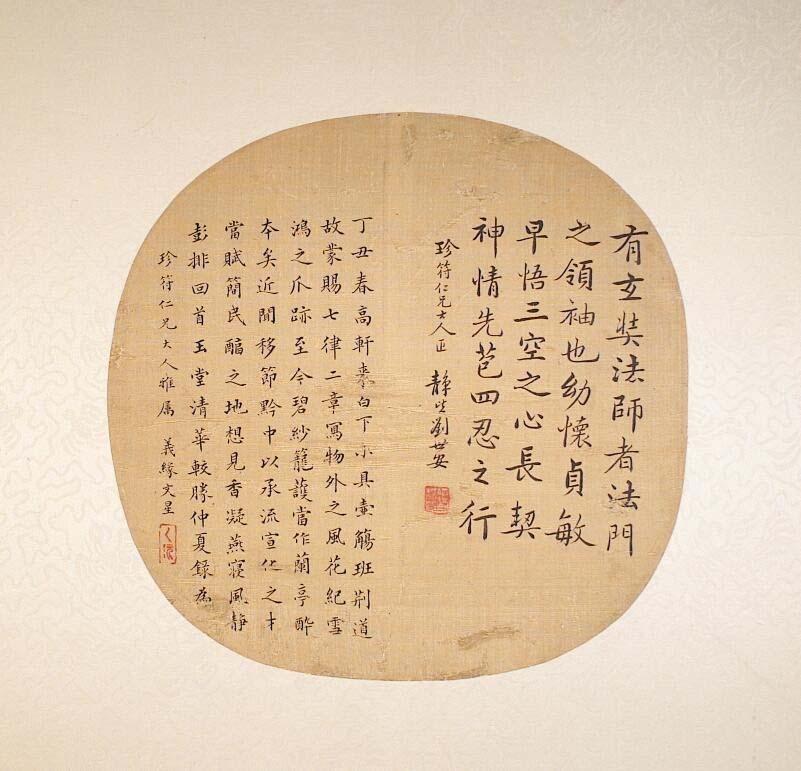 有玄奘法師者法門
之領袖也幼懷貞敏
早悟三空之心長契
神情先苞四忍之行
珍符仁兄大人正 靜山劉世安
丁丑春高軒來白下小具壺觴班荆道
故蒙賜七律二章寫物外之風花紀雪
鴻之爪跡至今碧紗籠護當作蘭亭酔
本矣近聞移節黔中以承流宣化之才
當賦簡民醕之地想見香凝燕寢風靜
彭排回首玉堂清華較勝仲夏録為
珍符仁兄大人雅属 義緣文星